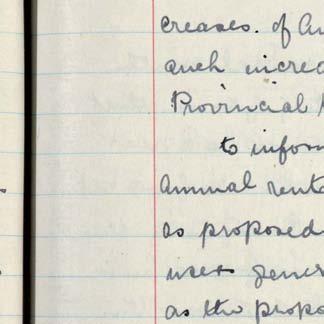 creases. of An
such increa
Provincial
to inform
annual rent
as proposed
users gener
as the propo